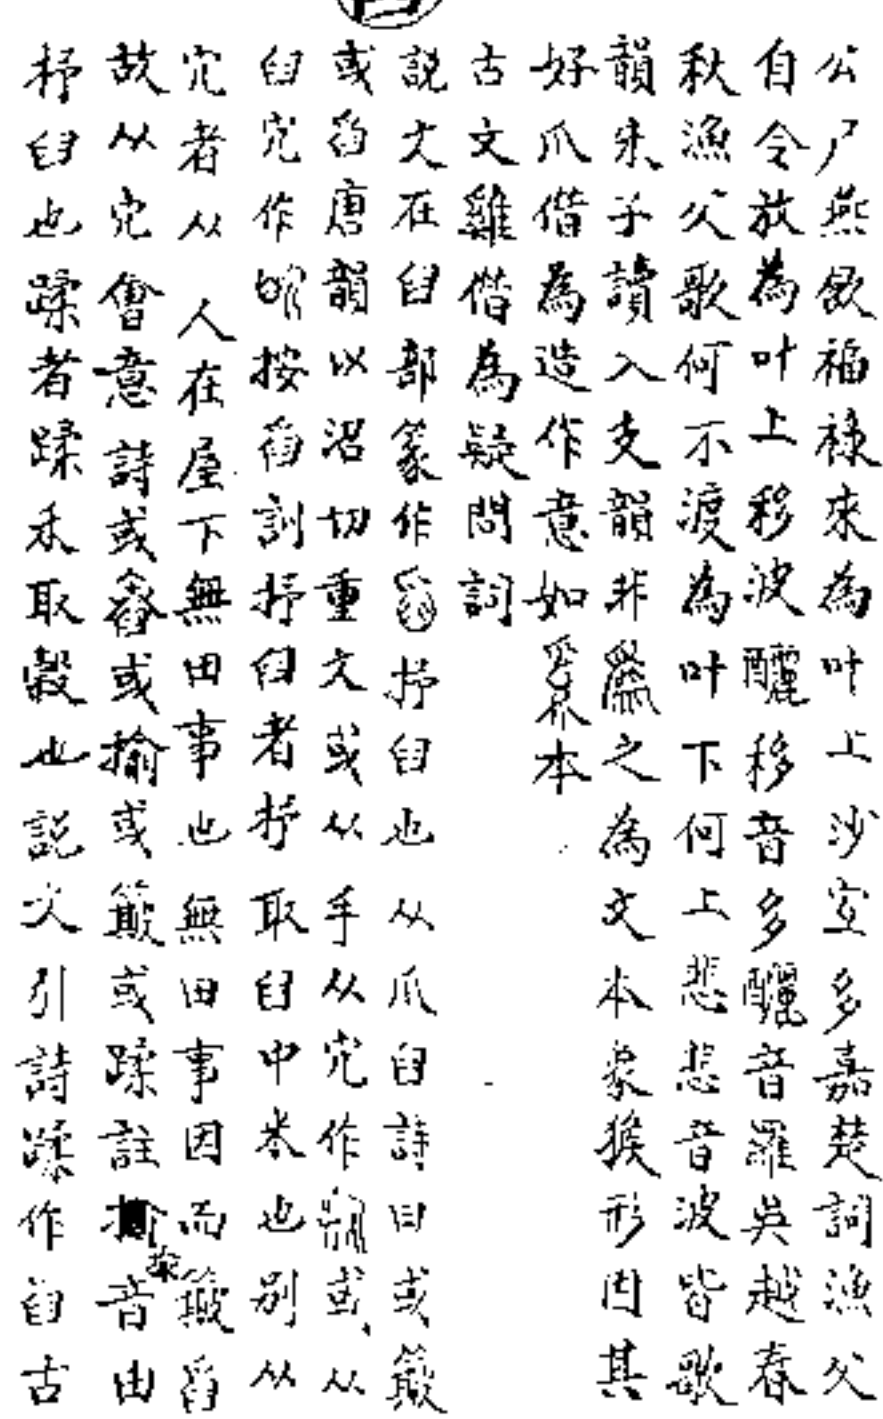 公尸燕飲福祿來為叶上沙宜多嘉楚詞漁父
自令放為叶上移波釃移音多釃音羅吳越春
秋漁父歌何不渡為叶下何上悲悲音波皆歌
韻朱子讀入支韻非之為文本象猴形因其
好爪借為造作意如本
古文雞借為疑問詞
說文在臼部篆作抒臼也从爪臼詩曰或簸
或舀唐韻以沼切重文或从手从宂作或从
臼宂作按舀訓抒臼者抒取臼中米也別从
宂者从人在屋下無田事也無田事因而簸舀
故从宂會意詩或舂或揄或簸或蹂註揄音由
抒臼也蹂者蹂禾取穀也說文引詩蹂作舀古